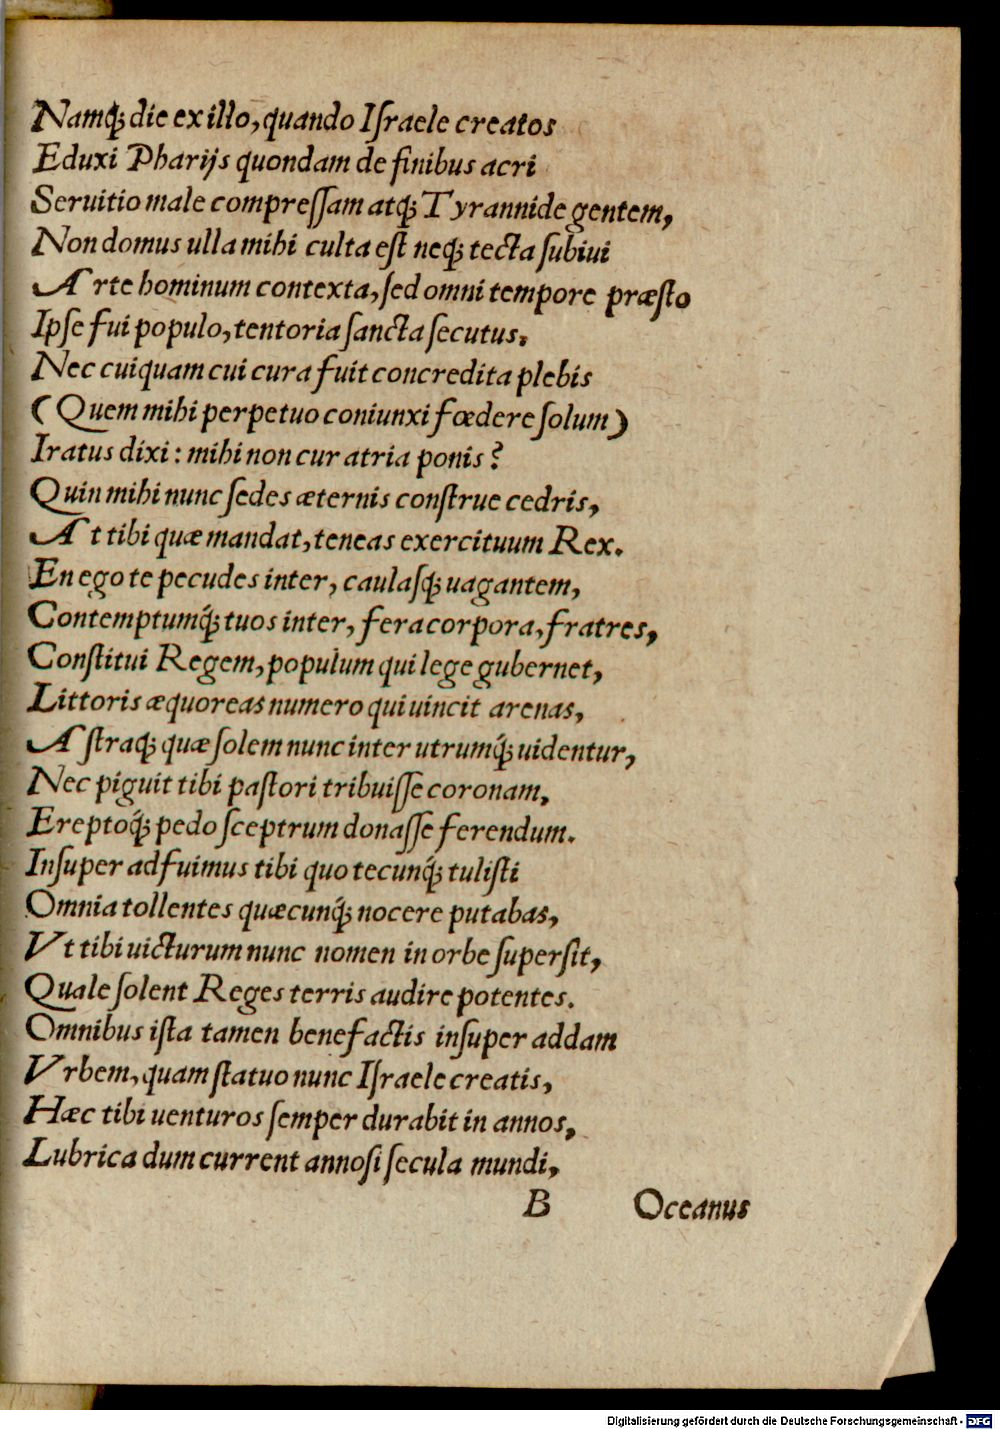 Namq́; die ex illo, quando Iſraele creatos
Eduxi Pharijs quondam de finibus acri
Seruitio male compreſſam atq́; Tyrannide gentem,
Non domus ulla mihi culta eſt neq́; tecta ſubiui
Arte hominum contexta, ſed omni tempore præſto
Ipſe fui populo, tentoria ſancta ſecutus.
Nec cuiquam cui cura fuit concredita plebis
(Quem mihi perpetuo coniunxi fœdere ſolum)
Iratus dixi: mihi non cur atria ponis?
Quin mihi nunc ſedes æternis conſtrue cedris,
At tibi quæ mandat, teneas exercituum Rex.
En ego te pecudes inter, caulaſq́; uagantem,
Contemptumq́; tuos inter, fera corpora, fratres,
Conſtitui Regem, populum qui lege gubernet,
Littoris æquoreas numero qui uincit arenas,
Aſtraq́; quæ ſolem nunc inter utrumq́; uidentur,
Nec piguit tibi paſtori tribuiſſe coronam,
Ereptoq́; pedo ſceptrum donaſſe ferendum.
Inſuper adfuimus tibi quo tecunq́; tuliſti
Omnia tollentes quæcunq́; nocere putabas,
Vt tibi uicturum nunc nomen in orbe ſuperſit,
Quale ſolent Reges terris audire potentes.
Omnibus iſta tamen benefactis inſuper addam
Vrbem, quam ſtatuo nunc Iſraele creatis,
Hæc tibi uenturos ſemper durabit in annos,
Lubrica dum current annoſi ſecula mundi,
B Oceanus
Digitalisierung gefördert durch die Deutsche Forschungsgemeinschaft - DFG